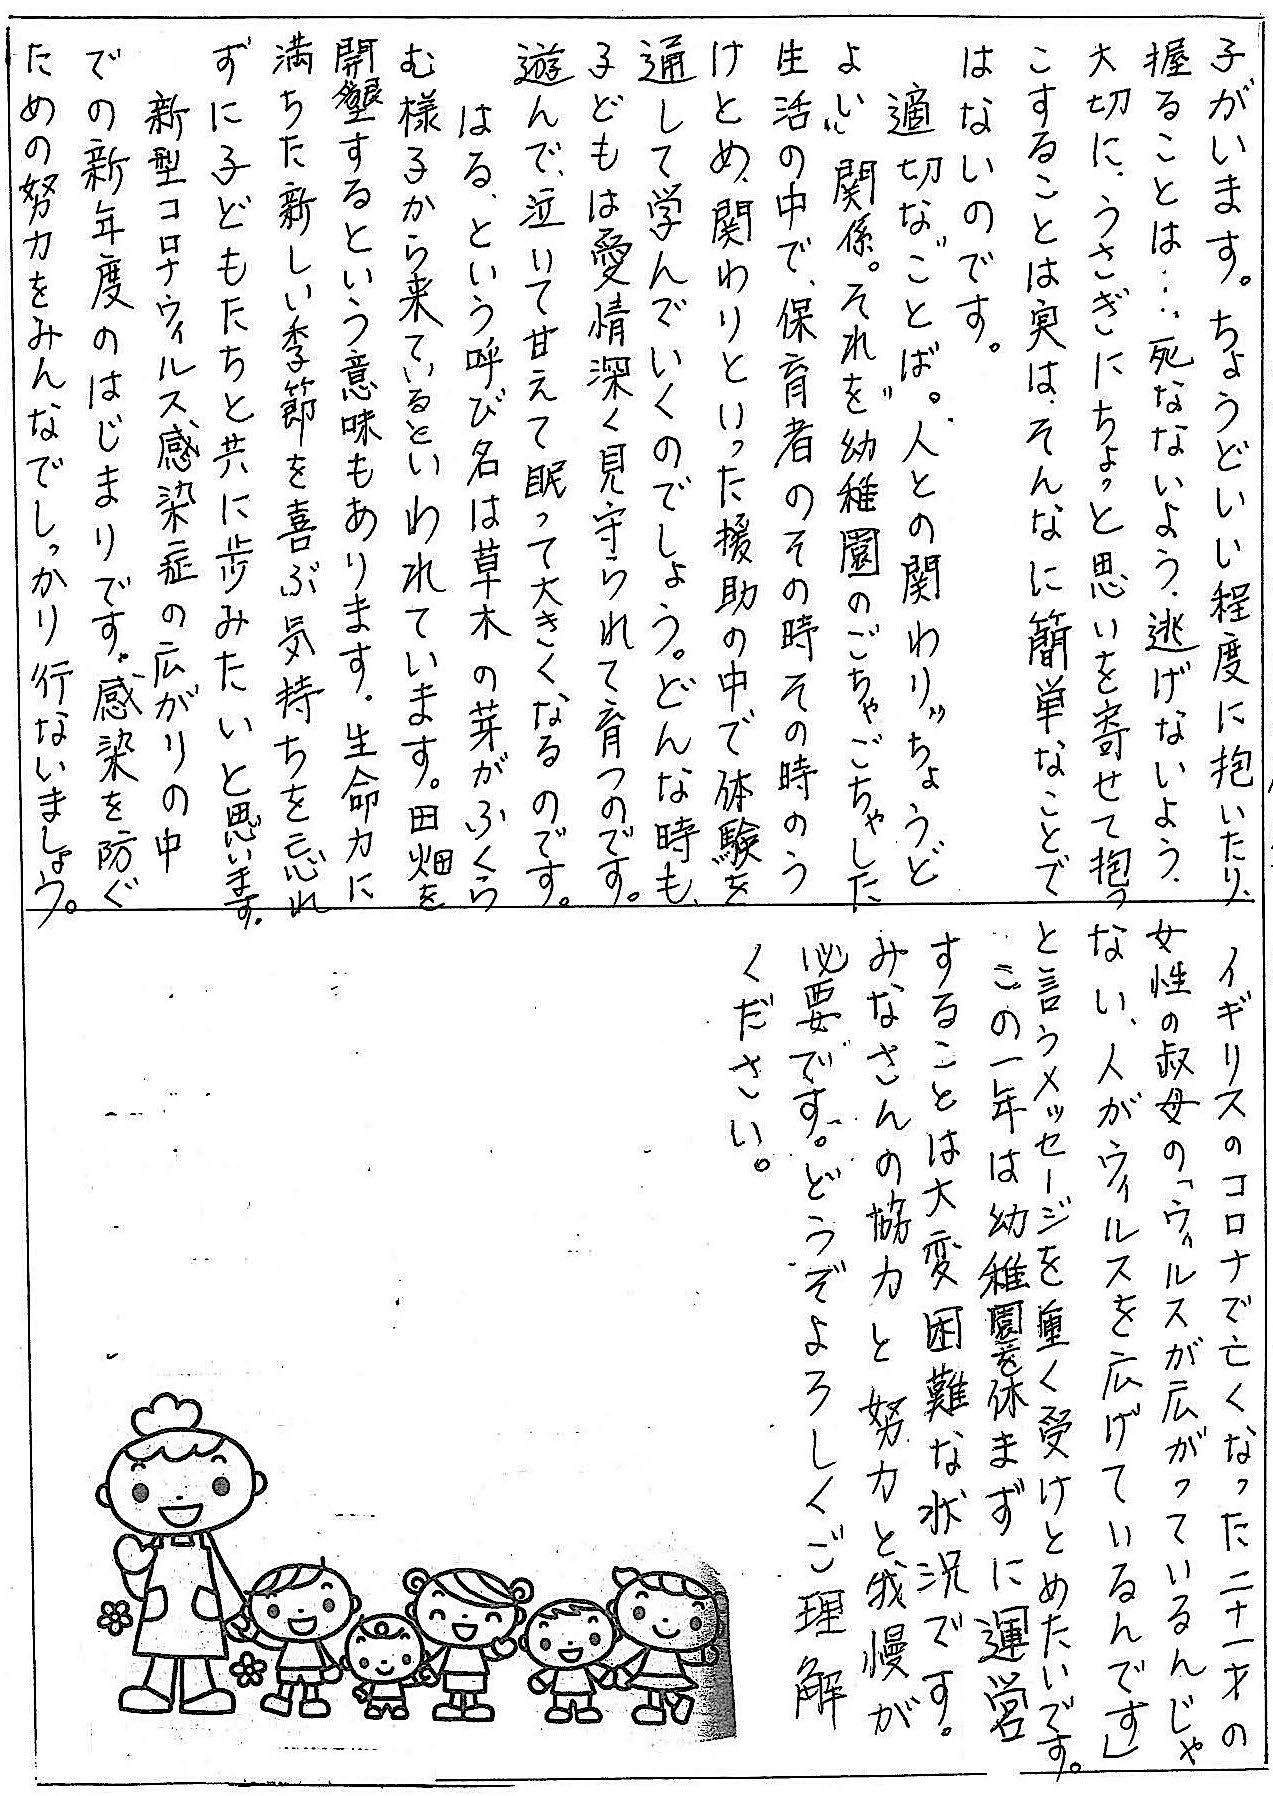 子がいます。ちょうどいい程度に抱いたり、
握ることは…死なないよう、逃げないよう、
大切に、うさぎにちょっと思いを寄せて抱っ
こすることは実は、そんなに簡単なことで
はないのです。
適切な〝ことば〟。人との関わり〟ちょうど
よい〟関係。それを〝幼稚園のごちゃごちゃした
生活の中で、保育者のその時その時のう
けとめ、関わりといった援助の中で体験を
通して学んでいくのでしょう。どんな時も、
子どもは愛情深く見守られて育つのです。
遊んで、泣いて甘えて眠って大きくなるのです。
はる、という呼び名は草木の芽がふくら
む様子から来ているといわれています。田畑を
開墾するという意味もあります。生命力に
満ちた新しい季節を喜ぶ気持ちを忘れ
ずに子どもたちと共に歩みたいと思います。
新型コロナウィルス感染症の広がりの中
での新年度のはじまりです。感染を防ぐ
ための努力をみんなでしっかり行ないましょう。
イギリスのコロナで亡くなった二十一才の
女性の叔母の「ウィルスが広がっているんじゃ
ない、人がウィルスを広げているんです」
と言うメッセージを重く受けとめたいです。
この一年は幼稚園を休まずに運営
することは大変困難な状況です。
みなさんの協力と努力と我慢が
必要です。どうぞよろしくご理解
ください。